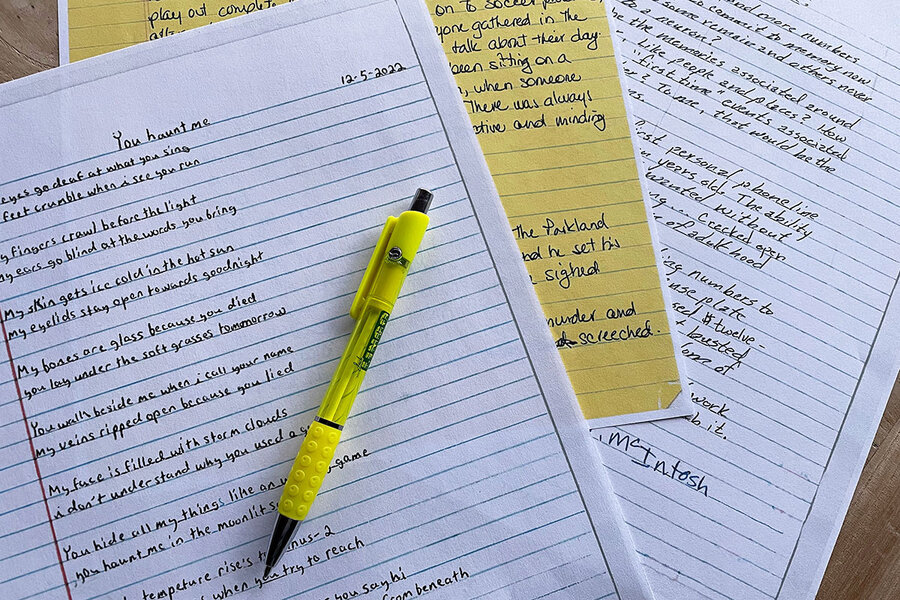 12-5-2022
You haunt me
eyes go deaf at what you sing
feet crumble when i see you run
fingers crawl before the light
my ears go blind at the words you bring
My skin gets ice cold in the hot sun
my eyelids stay open towards goodnight
My bones are glass because you died
you lay under the soft grasses tomorrow
You walk beside me when i call your name
My veins ripped open because you lied
My face is filled with storm clouds
i don't understand why you used a
-game
You hide all my things like an
you haunt me in the moonlit
tempeture rise's
-2
when you try to reach
you say hi
from beneath
play out complete
on to soccer
gathered in the
talk about their day.
been sitting on a
when someone
There was always
and minding
the Parkland
and he set his
sighed
murder and
screeched.
numbers
commit to memory now
some remain and others never
to a neuron in
the memories associated around
like people and places? How
first time & events associated
? To me, that would be the
first personal phone line
years old. The ability
wanted without
checked off
of adulthood
numbers to
plate
$ twelve-
busted
of
work
it.
McIntosh